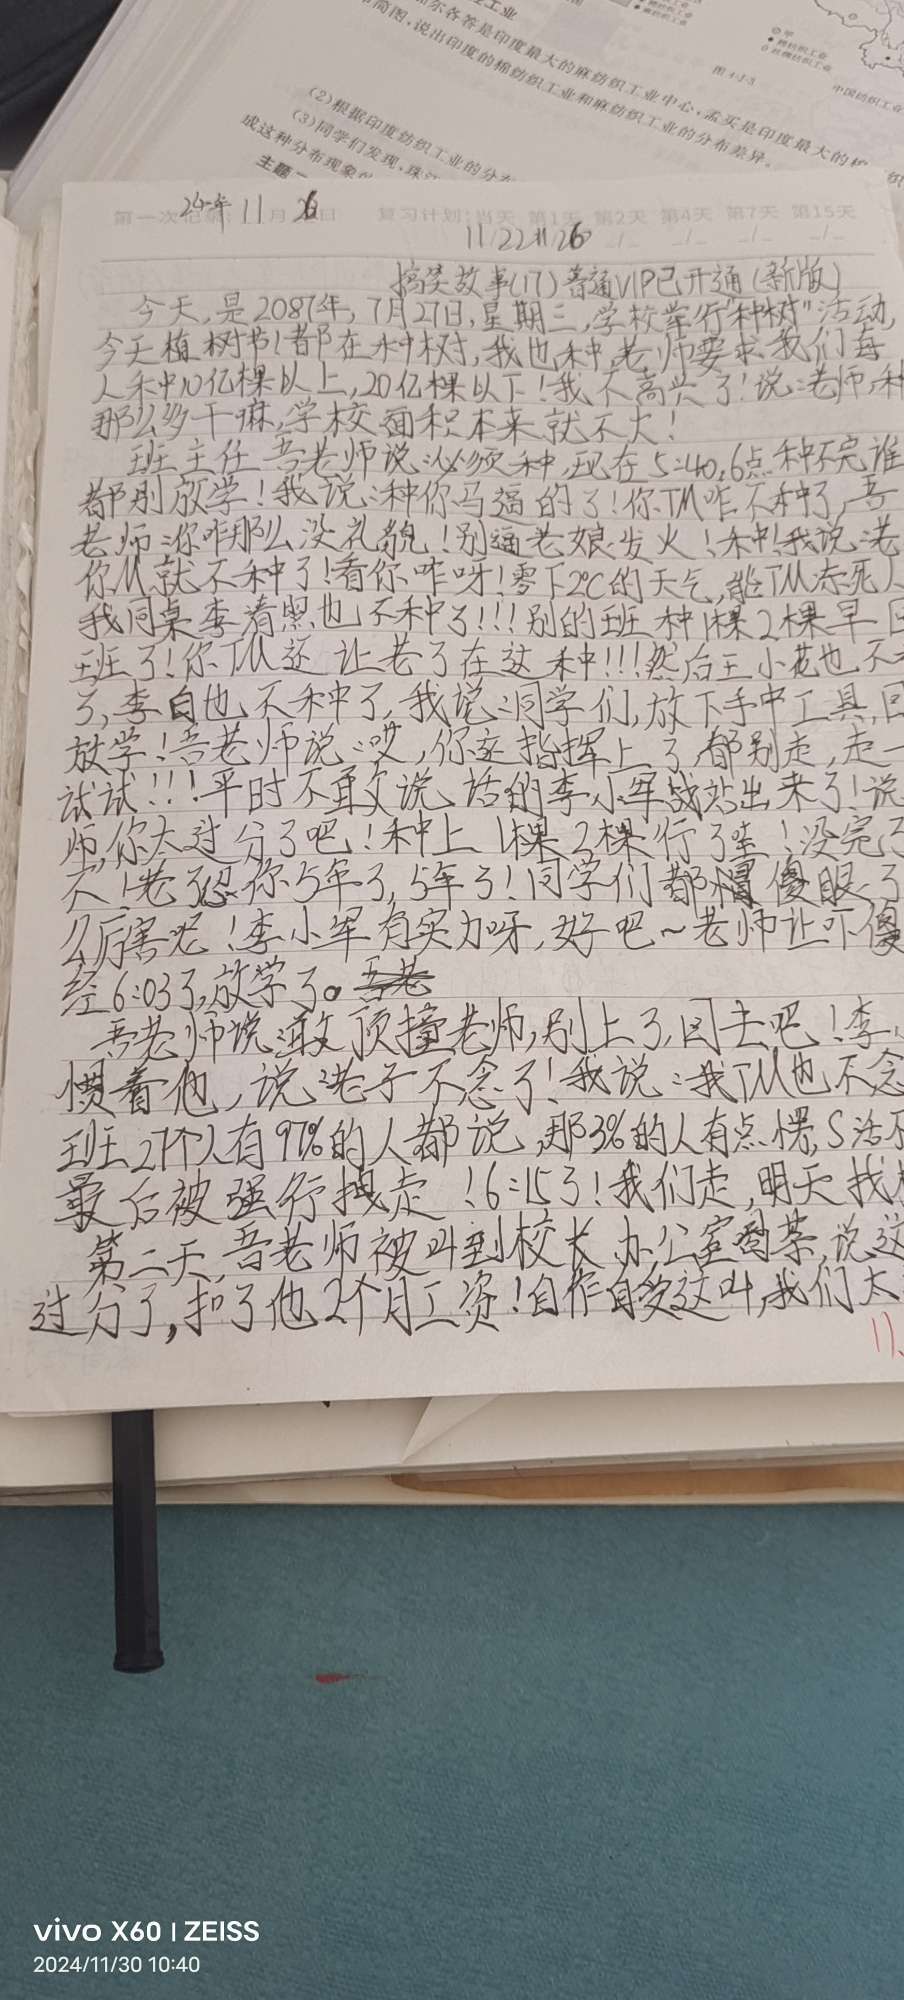 工业
尔各答是印度最大的麻纺织工业中心,孟买是印度最大的棉
简图,说出印度的棉纺织工业和麻纺织工业的分布差异。
图4-J-3
中国纺织工业
(2)根据印度纺织工业的分布
(3)同学们发现,珠江
成这种分布现象的
主题二
第一次记录: 24年 11月 26日 复习计划:当天 第1天 第2天 第4天 第7天 第15天
11/22 11/26
搞笑故事(17)普通VIP已开通(新版)
今天,是2087年,7月27日,星期三,学校举行"种树"活动,
今天植树节!都在种树,我也种,老师要求我们每
人种10亿棵以上,20亿棵以下!我不高兴了!说:老师,种
那么多干嘛,学校面积本来就不大!
班主任吾老师说:必须种,现在5:40,6点种不完谁
都别放学!我说:种你马逼的了!你TM咋不种了,吾
老师:你咋那么没礼貌!别逼老娘发火!种!我说:老
你M就不种了!看你咋呀!零下2℃的天气,能TM冻死人
我同桌李清照也不种了!!!别的班种1棵2棵早回
班了!你TM还让老子在这种!!!然后王小花也不
了,李白也不种了,我说:同学们,放下手中工具,回
放学!吾老师说:哎,你家指挥上了,都别走,走一
试试!!!平时不敢说话的李小军战站出来了!说
师,你太过分了吧!种上1棵2棵行了哇!没完了
不!老子忍你5年了,5年了!同学们都傻眼了
么厉害呢!李小军有实力呀,好吧~老师让吓傻
经6:03了,放学了。吾老
吾老师说:敢顶撞老师,别上了,回去吧!李
惯着他,说:老子不念了!我说:我TM也不念
班27个人有97%的人都说,那3%的人有点愣,S活不
最后被强行拽走!6:15了!我们走,明天找校
第二天,吾老师被叫到校长办公室喝茶,说这
过分了,扣了他2个月工资!自作自受这叫,我们太
11.
vivo X60 | ZEISS
2024/11/30 10:40